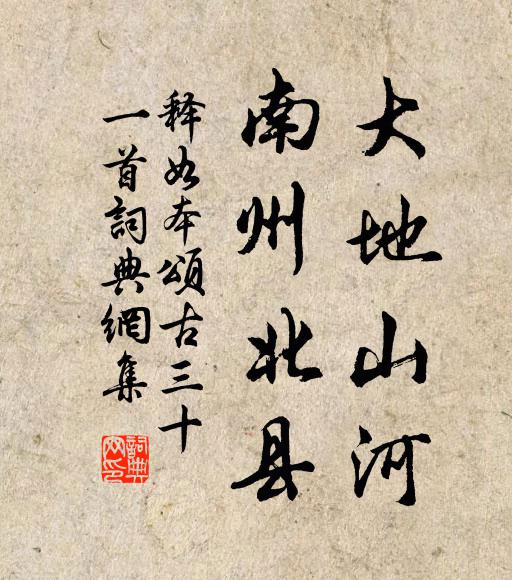 大地山河
南州北县
释如本颂古三十
一首詞典網集
詞典
网印